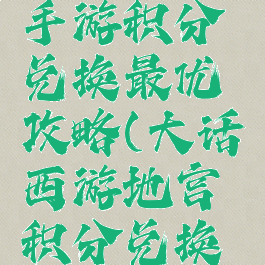 手游积分
兑换最优
攻略(大话
西游地宫
积分兑换